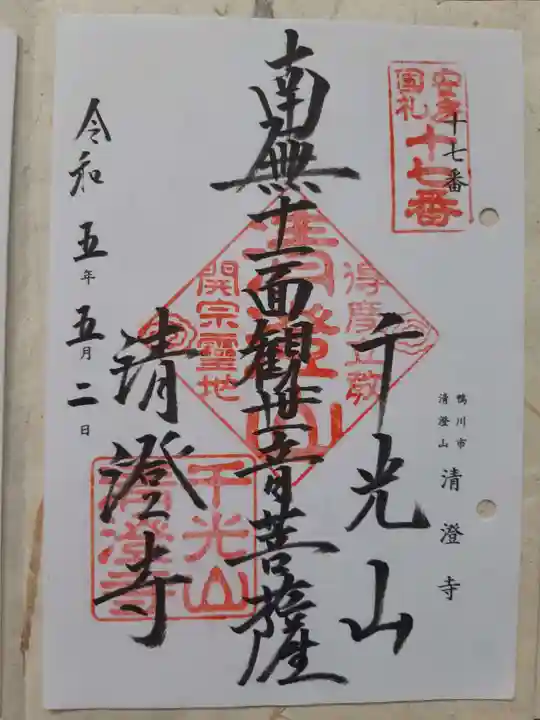 安房
国札
十七番
十七番
鴨川市
清澄山
清澄寺
千光山
得度立教
清澄山
開宗霊地
南無十一面観世音菩薩
清澄寺
千光山
清澄寺
令和五年五月二日